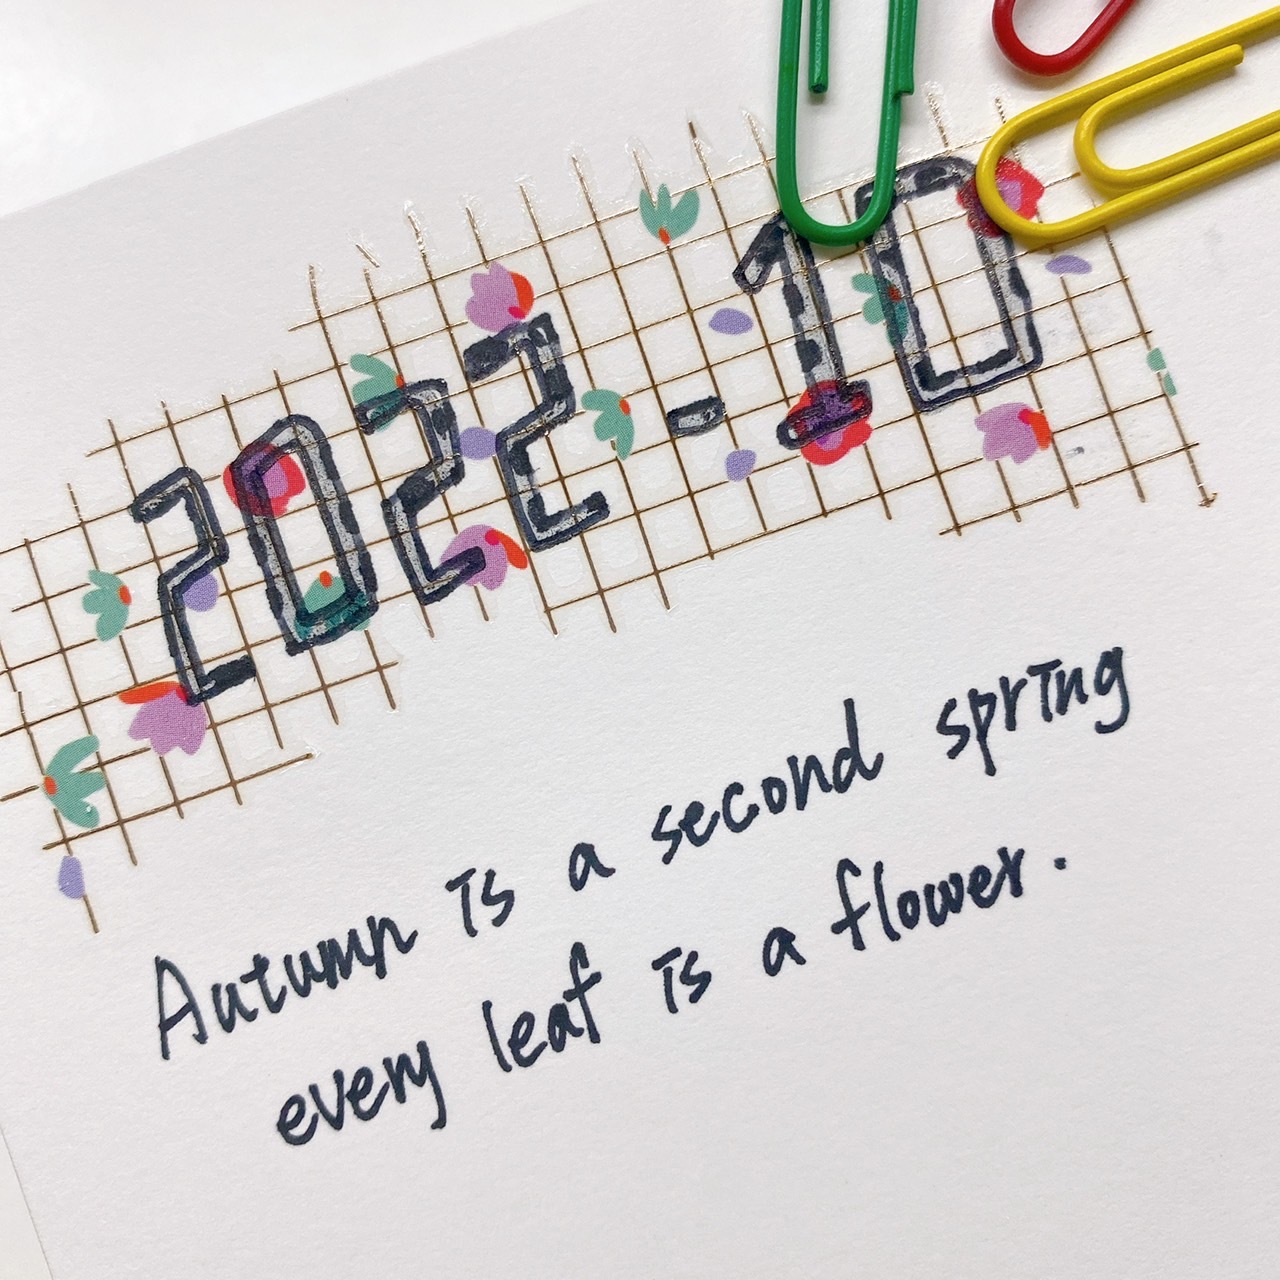 2022-10
Autumn is a second spring
every leaf is a flower.